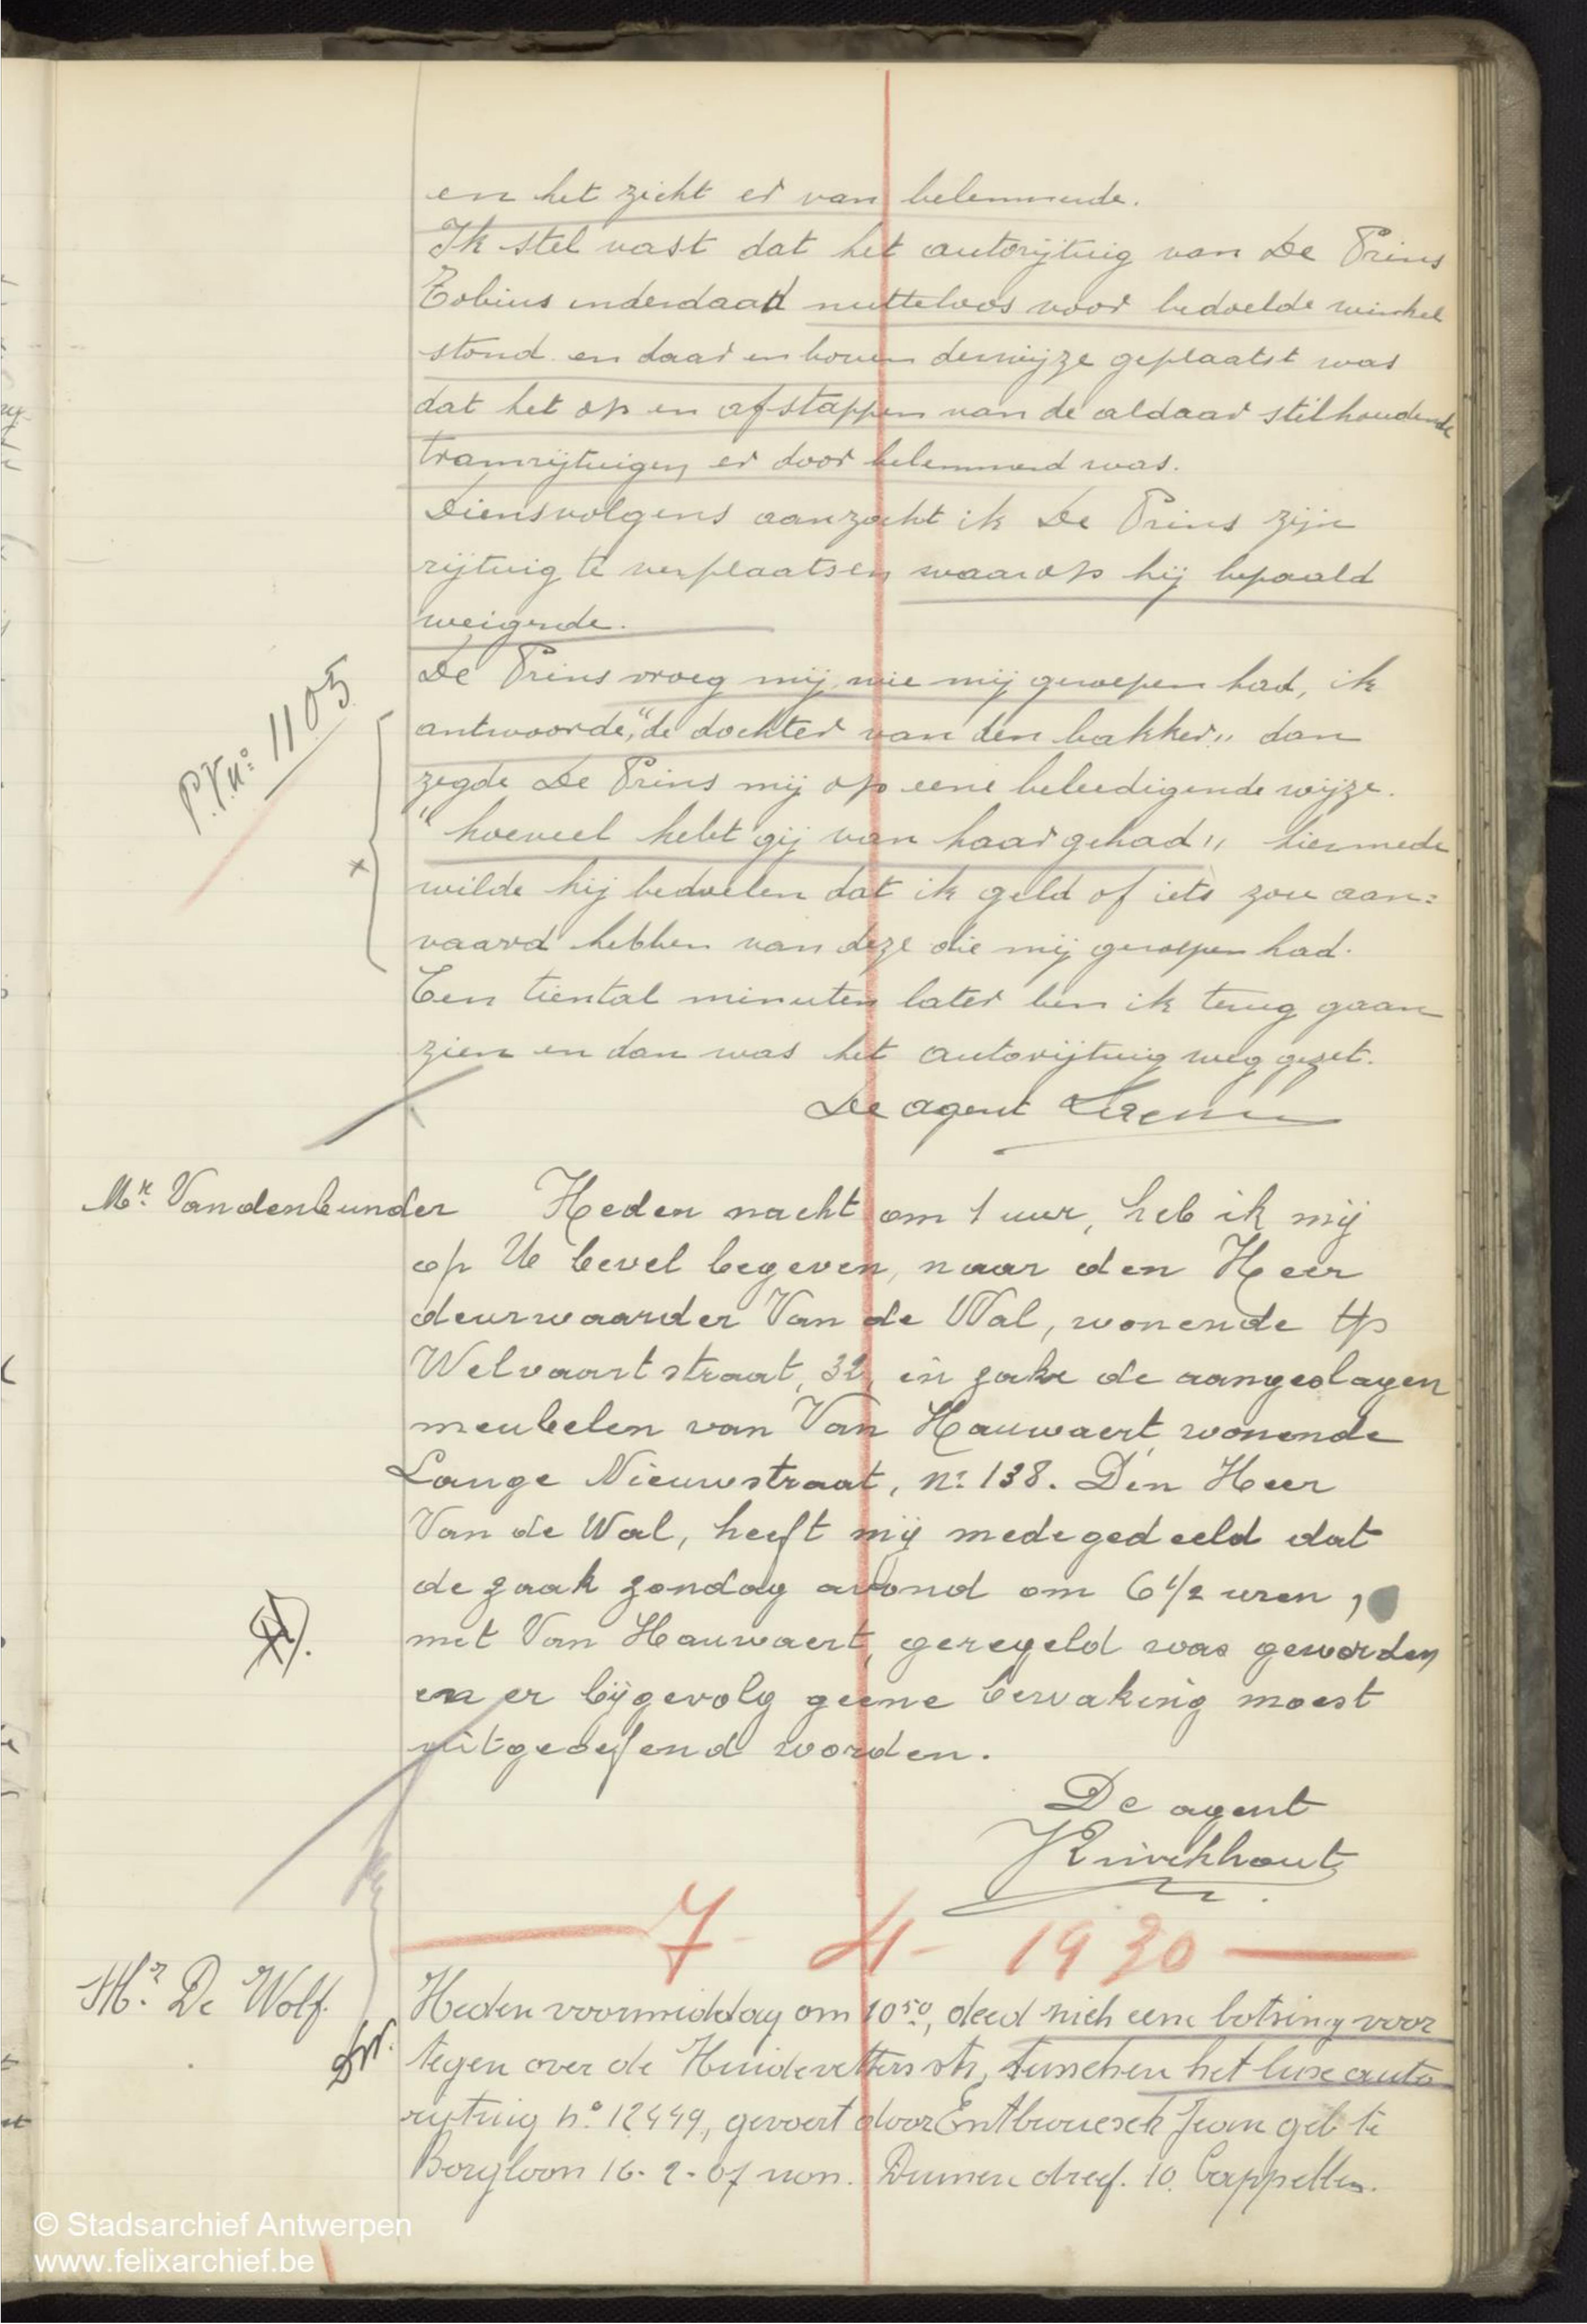 en het zicht er van belemmerde.
Ik stel vast dat het autorijtuig van De Prins
Tobius inderdaad nutteloos voor bedoelde winkel
stond en daar en boven derwijze geplaatst was
dat het op en afstappen van de aldaar stilhoudende
tramrijtuigen er door belemmerd was.
Diensvolgens aanzocht ik De Prins zijn
rijtuig te verplaatsen waarop hij bepaald
weigerde.
De Prins vroeg mij wie mij geroepen had, ik
P.V. n°: 1105
antwoorde, "de dochter van den bakker" dan
zegde De Prins mij op eene beleedigende wijze.
"hoeveel hebt gij van haar gehad" hiermede
wilde hij bedoelen dat ik geld of iets zou aan=
vaard hebben van deze die mij geroepen had.
Een tiental minuten later ben ik terug gaan
zien en dan was het autorijtuig weg gezet.
De agent
Mr. Vandenbunder
Heden nacht om 1 uur, heb ik mij
op Uw bevel begeven, naar den Heer
deurwaarder Van de Wal, wonende
Welvaartstraat, 32, in zake de aangeslagen
meubelen van Van Hauwaert wonende
Lange Nieuwstraat, n: 138. Den Heer
Van de Wal, heeft mij medegedeeld dat
de zaak zondag avond om 6 1/2 uren,
met Van Hauwaert, geregeld was geworden
en er bijgevolg geene bewaking moest
uitgeoefend worden.
De agent
7 - 4 - 1930
Mr. De Wolf.
Heden voormiddag om 10 50, deed zich eene botsing voor
tegen over de Huidevetters str, tusschen het luxe auto
rijtuig n° 12449, gevoert door Jean geb te
Borgloon 16-2-07 won. dreef. 10. Cappellen.
© Stadsarchief Antwerpen
www.felixarchief.be